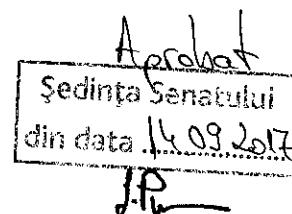 Aprobat
Ședința Senatului
din data 14.09.2017